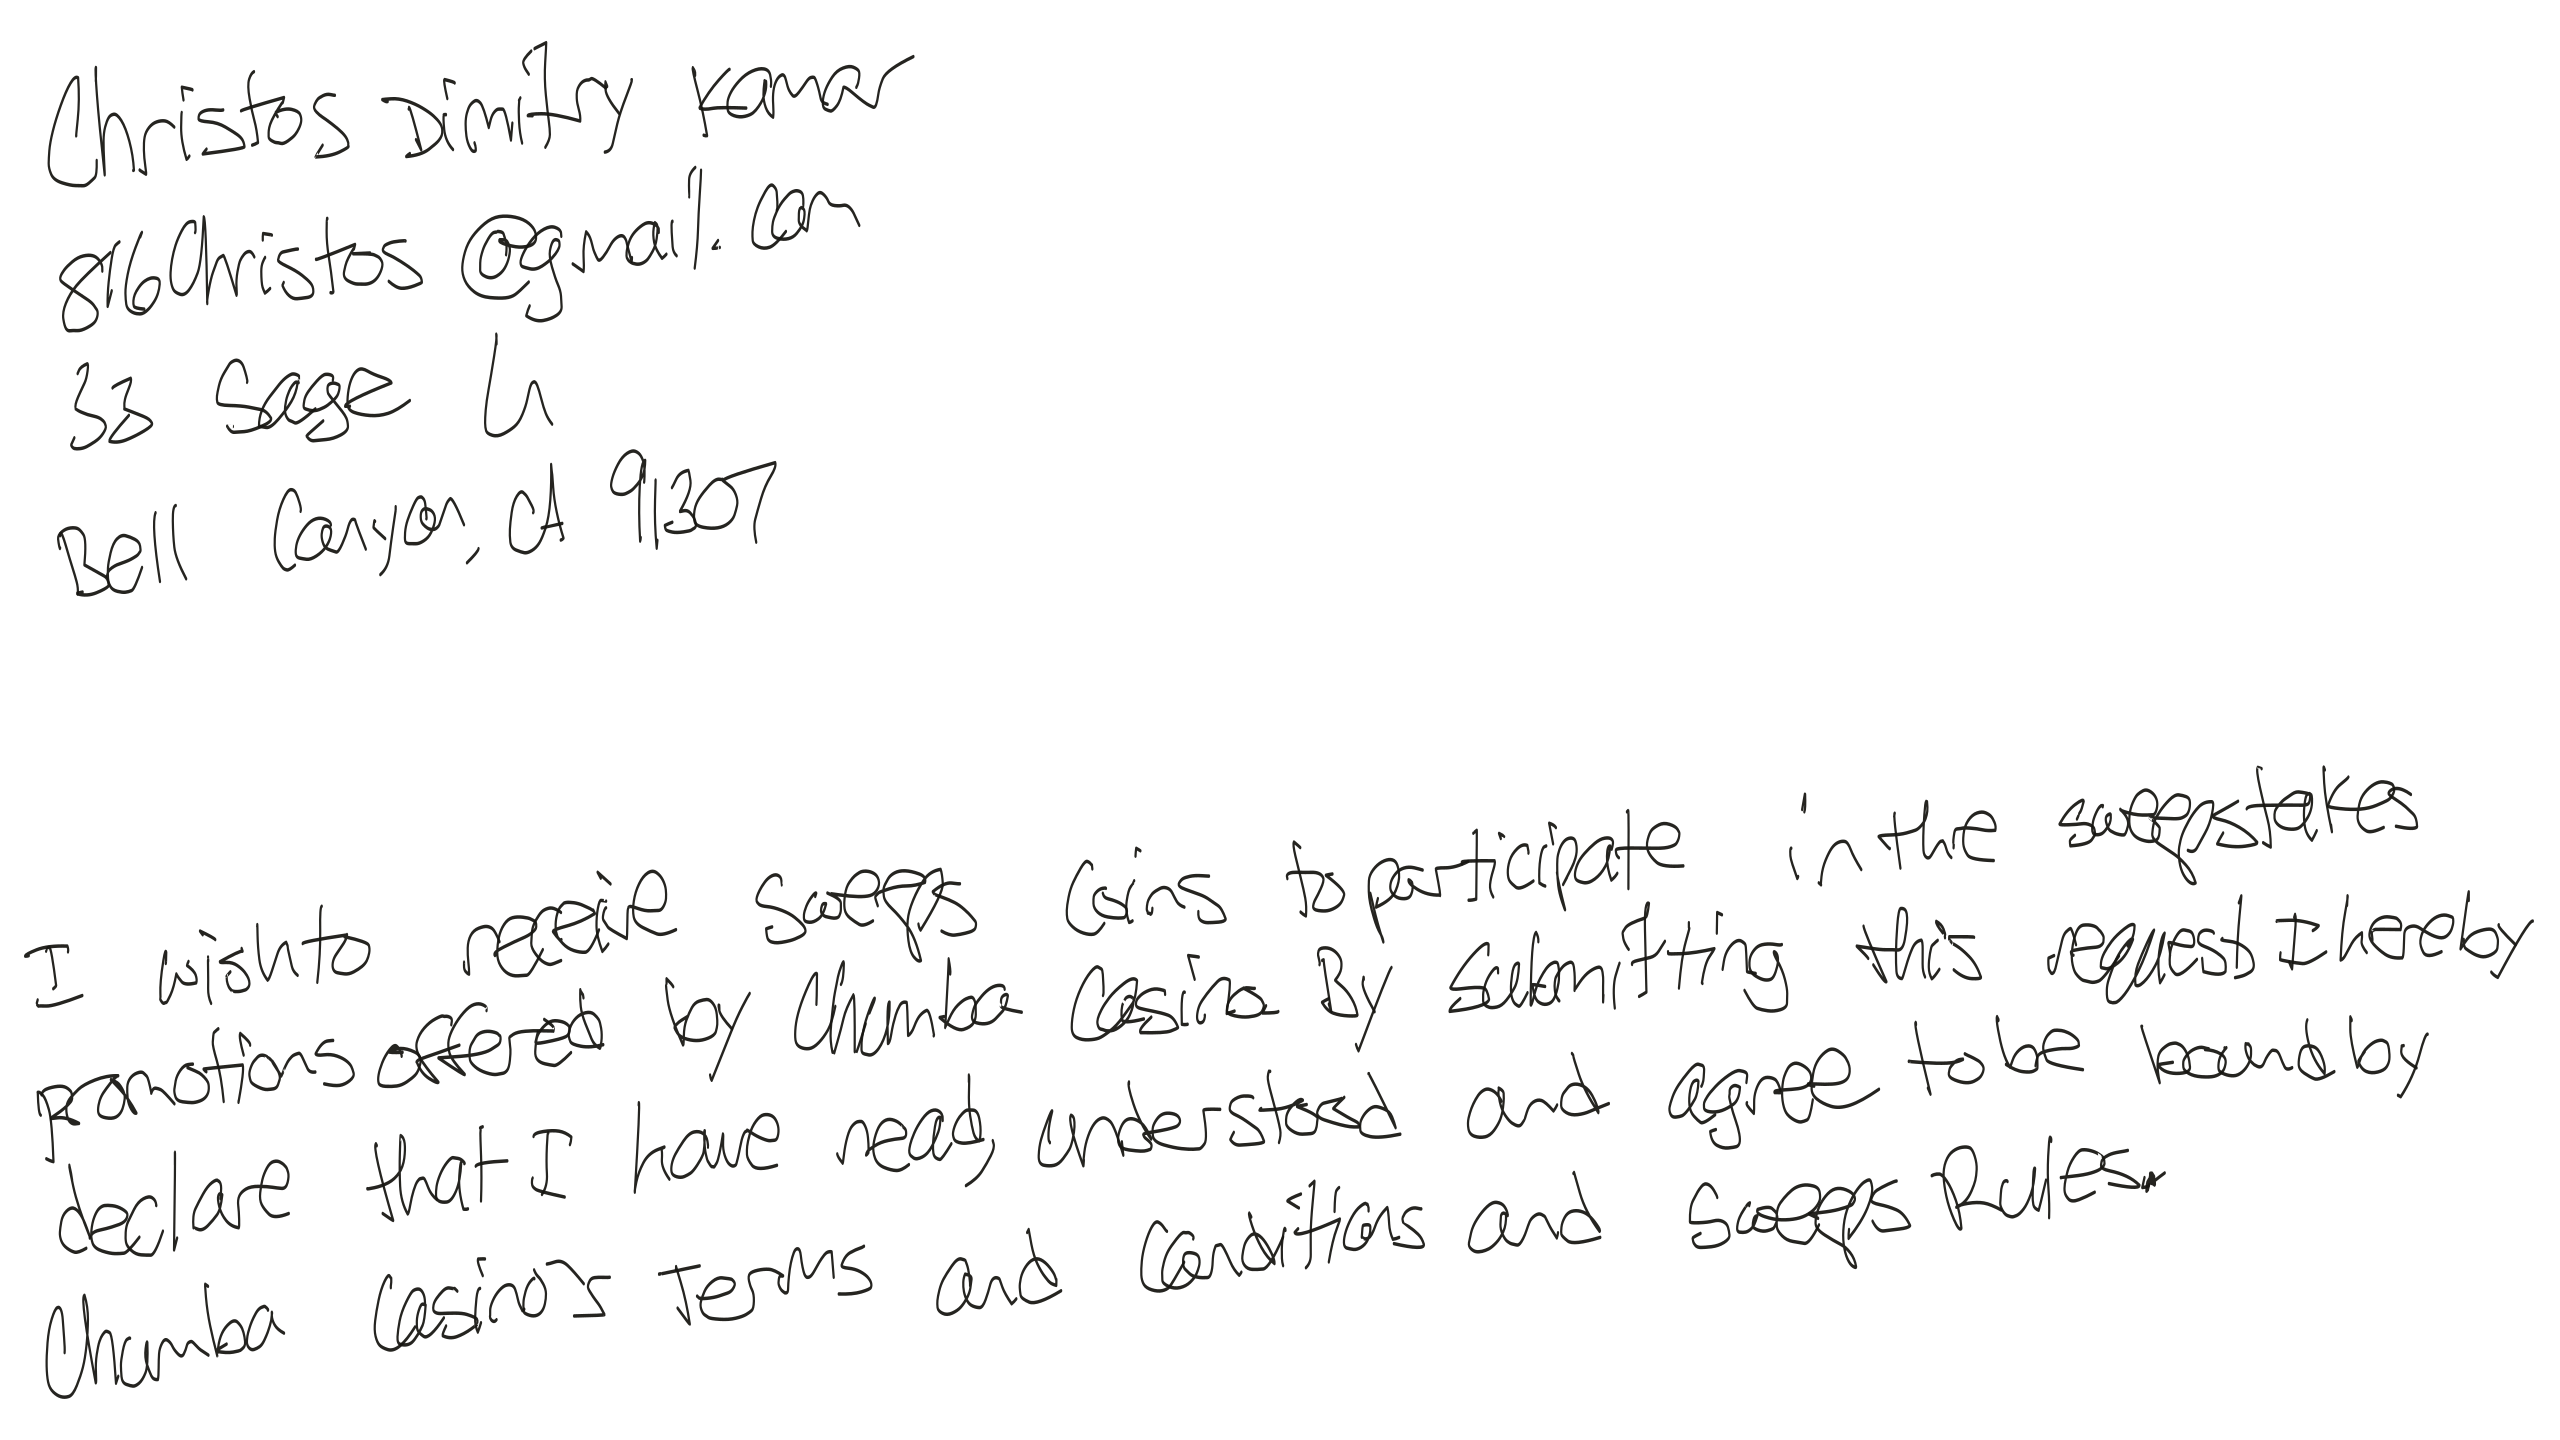 Christos Dimitry Kamar
816Christos@gmail.com
33 Sage Ln
Bell Canyon, CA 91307
I wish to receive Sweeps Coins to participate in the sweepstakes
promotions offered by Chumba Casino By submitting this request I hereby
declare that I have read, understood and agree to be bound by
Chumba Casino's Terms and Conditions and Sweeps Rules.